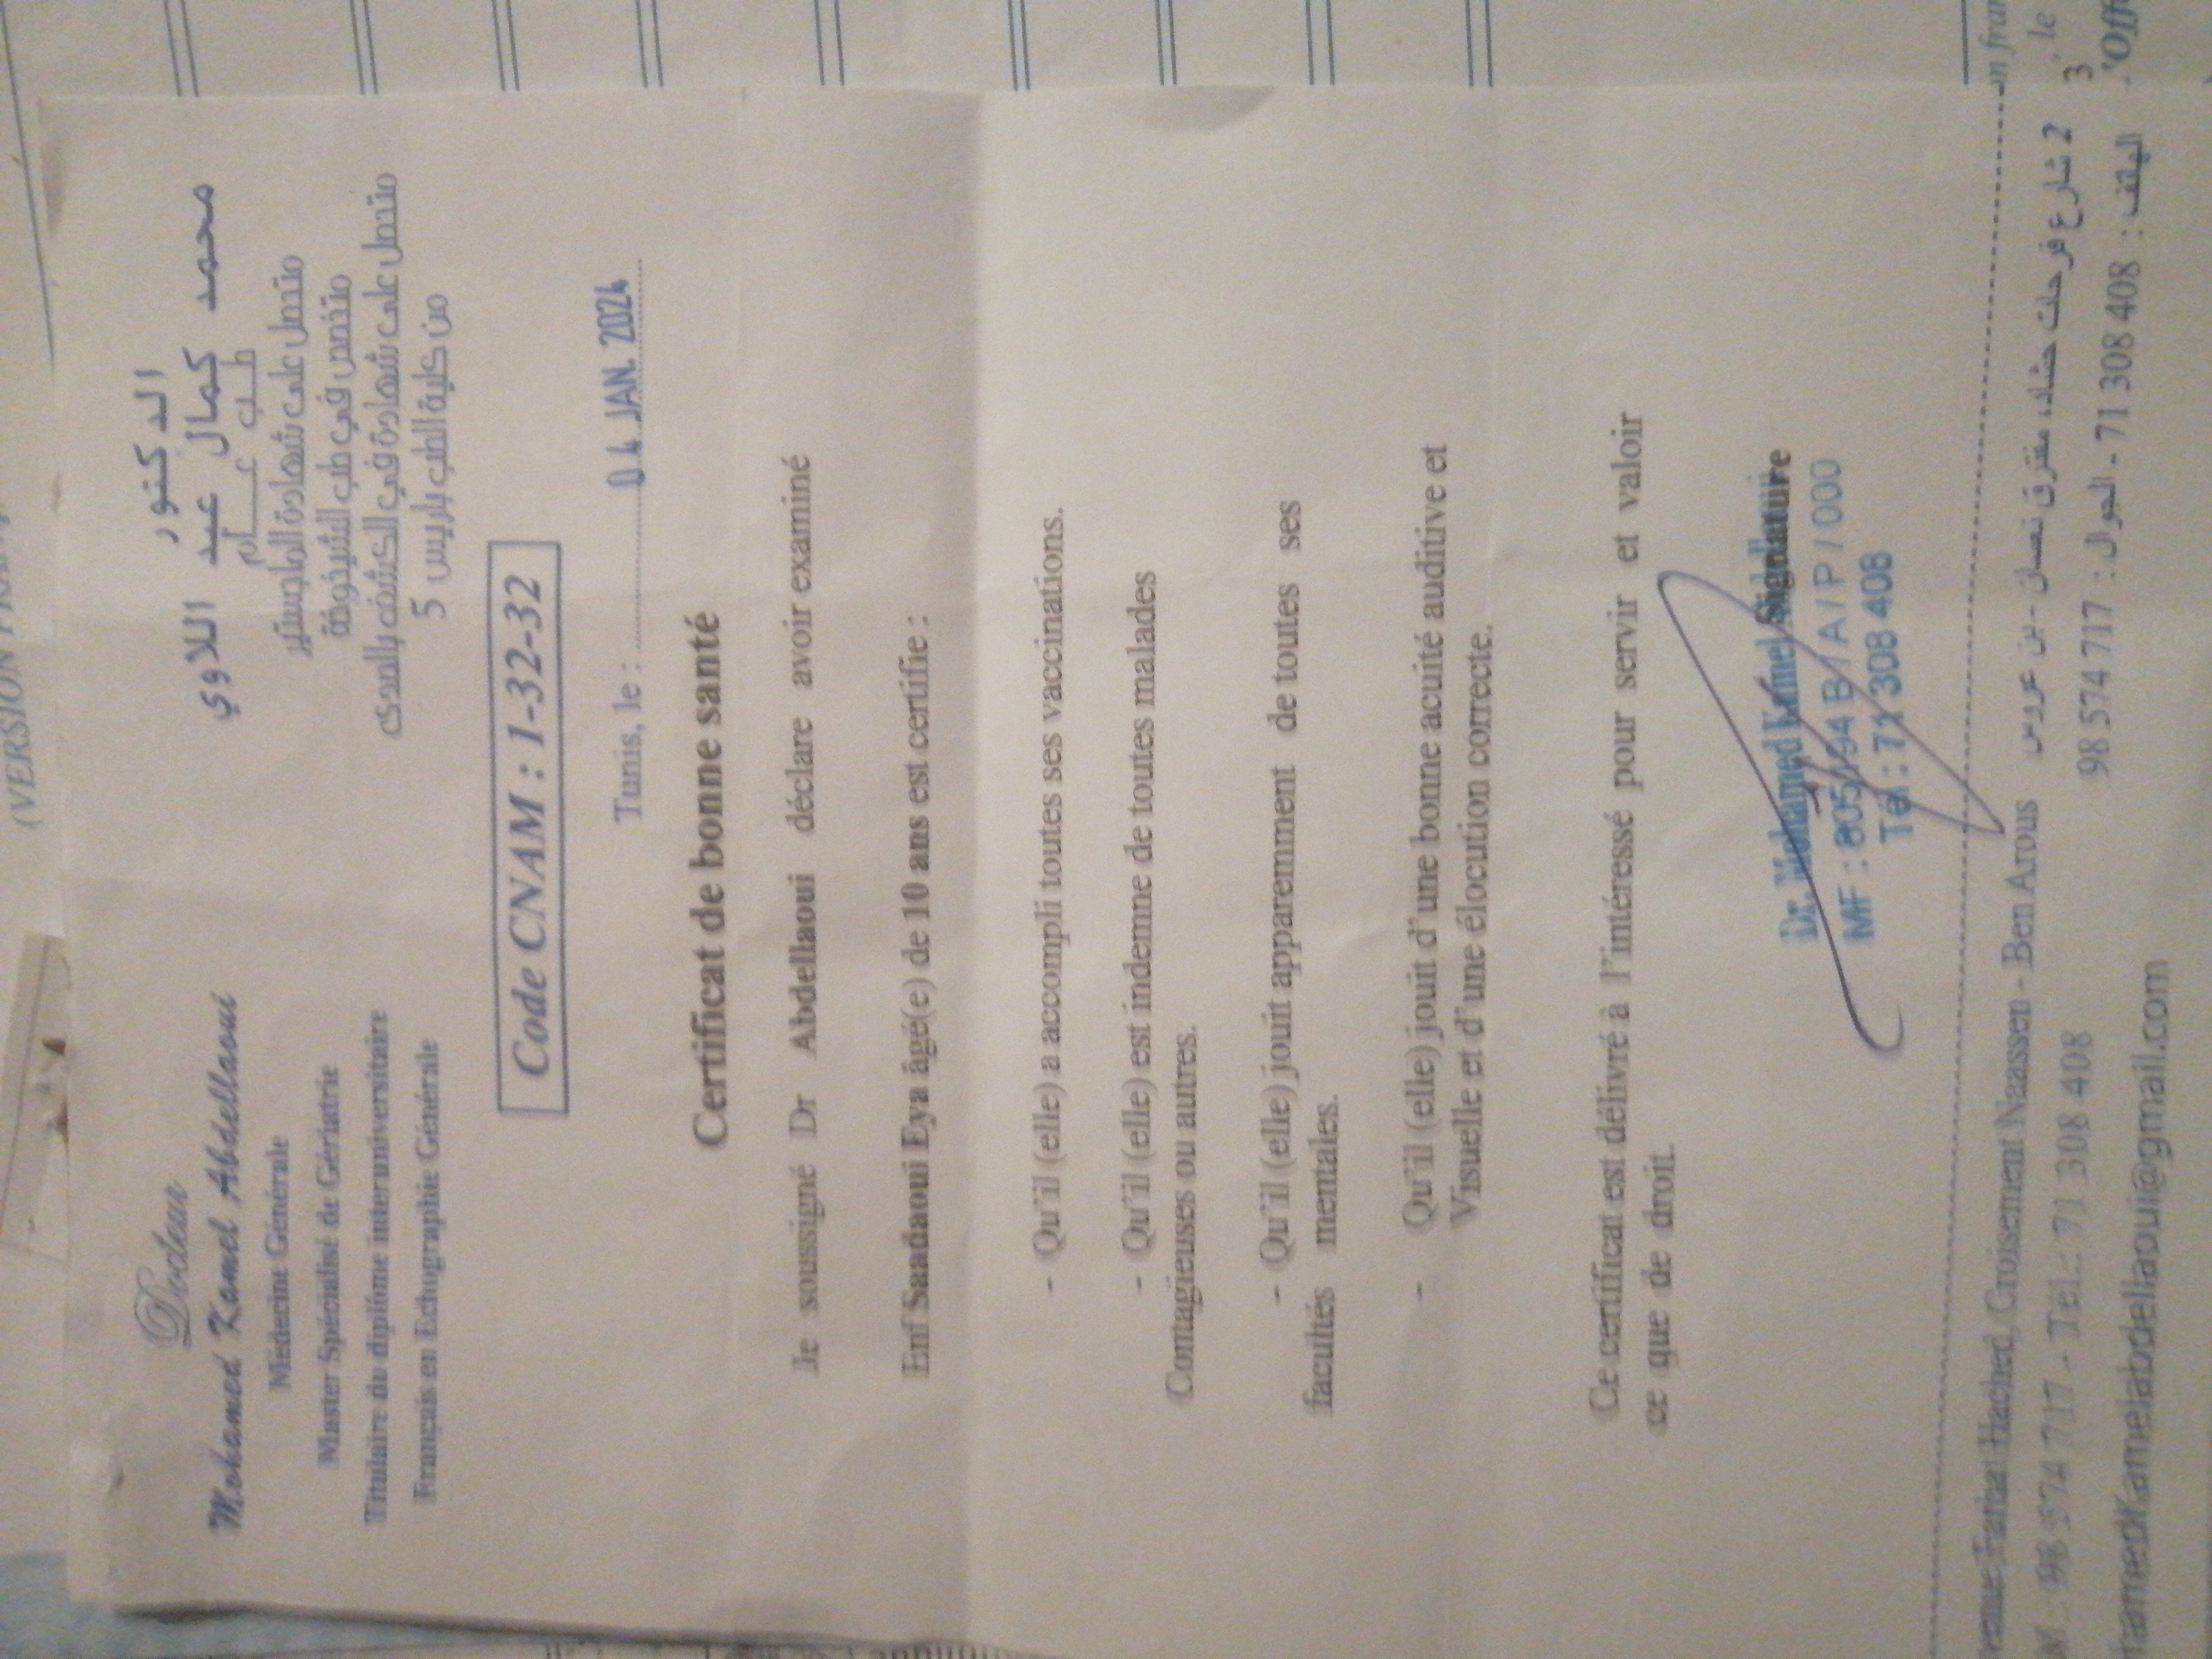 (VERSION
Docteur
Mohamed Kamel Abdellaoui
Médecine Générale
Master Spécialisé de Gériatrie
Titulaire du diplôme interuniversitaire
Français en Echographie Générale
الدكتور
محمد كمال عبد اللاوي
طب عـــام
متحصل على شهادة الماجستير
متخصص في طب الشيخوخة
متحصل على شهادة في الكشف بالصدى
من كلية الطب باريس 5
Code CNAM : 1-32-32
Tunis, le : 04 JAN. 2024
Certificat de bonne santé
Je soussigné Dr Abdellaoui déclare avoir examiné
Enf Saadaoui Eya âgé(e) de 10 ans est certifie :
- Qu'il (elle) a accompli toutes ses vaccinations.
- Qu'il (elle) est indemne de toutes malades
Contagieuses ou autres.
- Qu'il (elle) jouit apparemment de toutes ses
facultés mentales.
- Qu'il (elle) jouit d'une bonne acuité auditive et
Visuelle et d'une élocution correcte.
Ce certificat est délivré à l'intéressé pour servir et valoir
ce que de droit.
Signature
Dr. Mohamed Kamel
MF : 805 /A/P/000
Tél : 71 308 408
venue Farhat Hached, Croisement Naassen - Ben Arous
2 شارع فرحات حشاد، مفترق نعسان - بن عروس
M : 98 574 717 - Tél.: 71 308 408
98 574 717 : الجوال - 71 308 408 : الهاتف
hamedKamelabdellaoui@gmail.com
, le
3